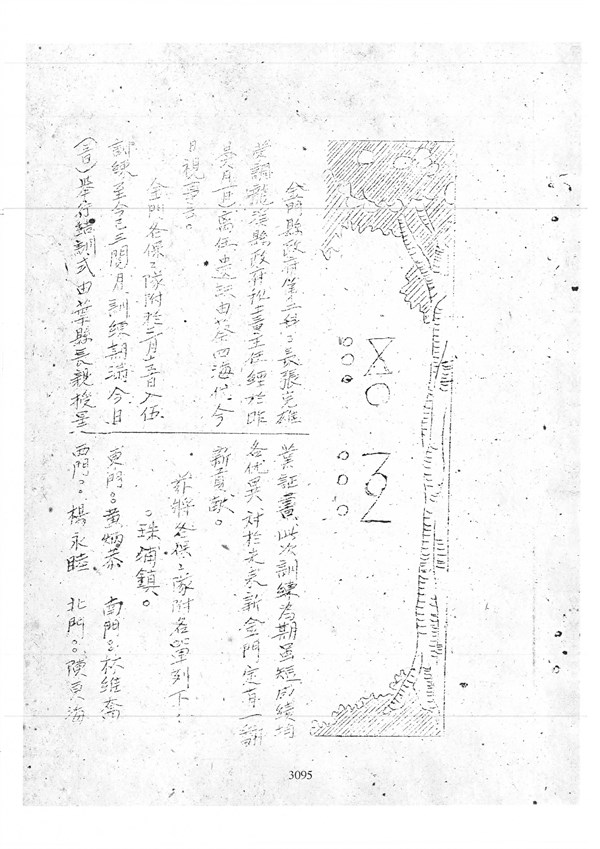 金門縣政府第三科〻長張光雄
受調龍溪縣政府秘書主任經於昨
離任出缺由蔡四海代今
日視事云。
金門各保〻隊附於三月十五日入伍
訓練至今已三閱月訓練期滿今日
舉行結訓式由葉縣長親授畢
業証書此次訓練為期虽短成績均
各优異对於未來新金門定有一番
新貢献。
茲將各保〻隊附名單列下:
。珠浦鎮。
東門:黃炳恭 南門:林維喬
西門:楊永睦 北門:陳 海
3095